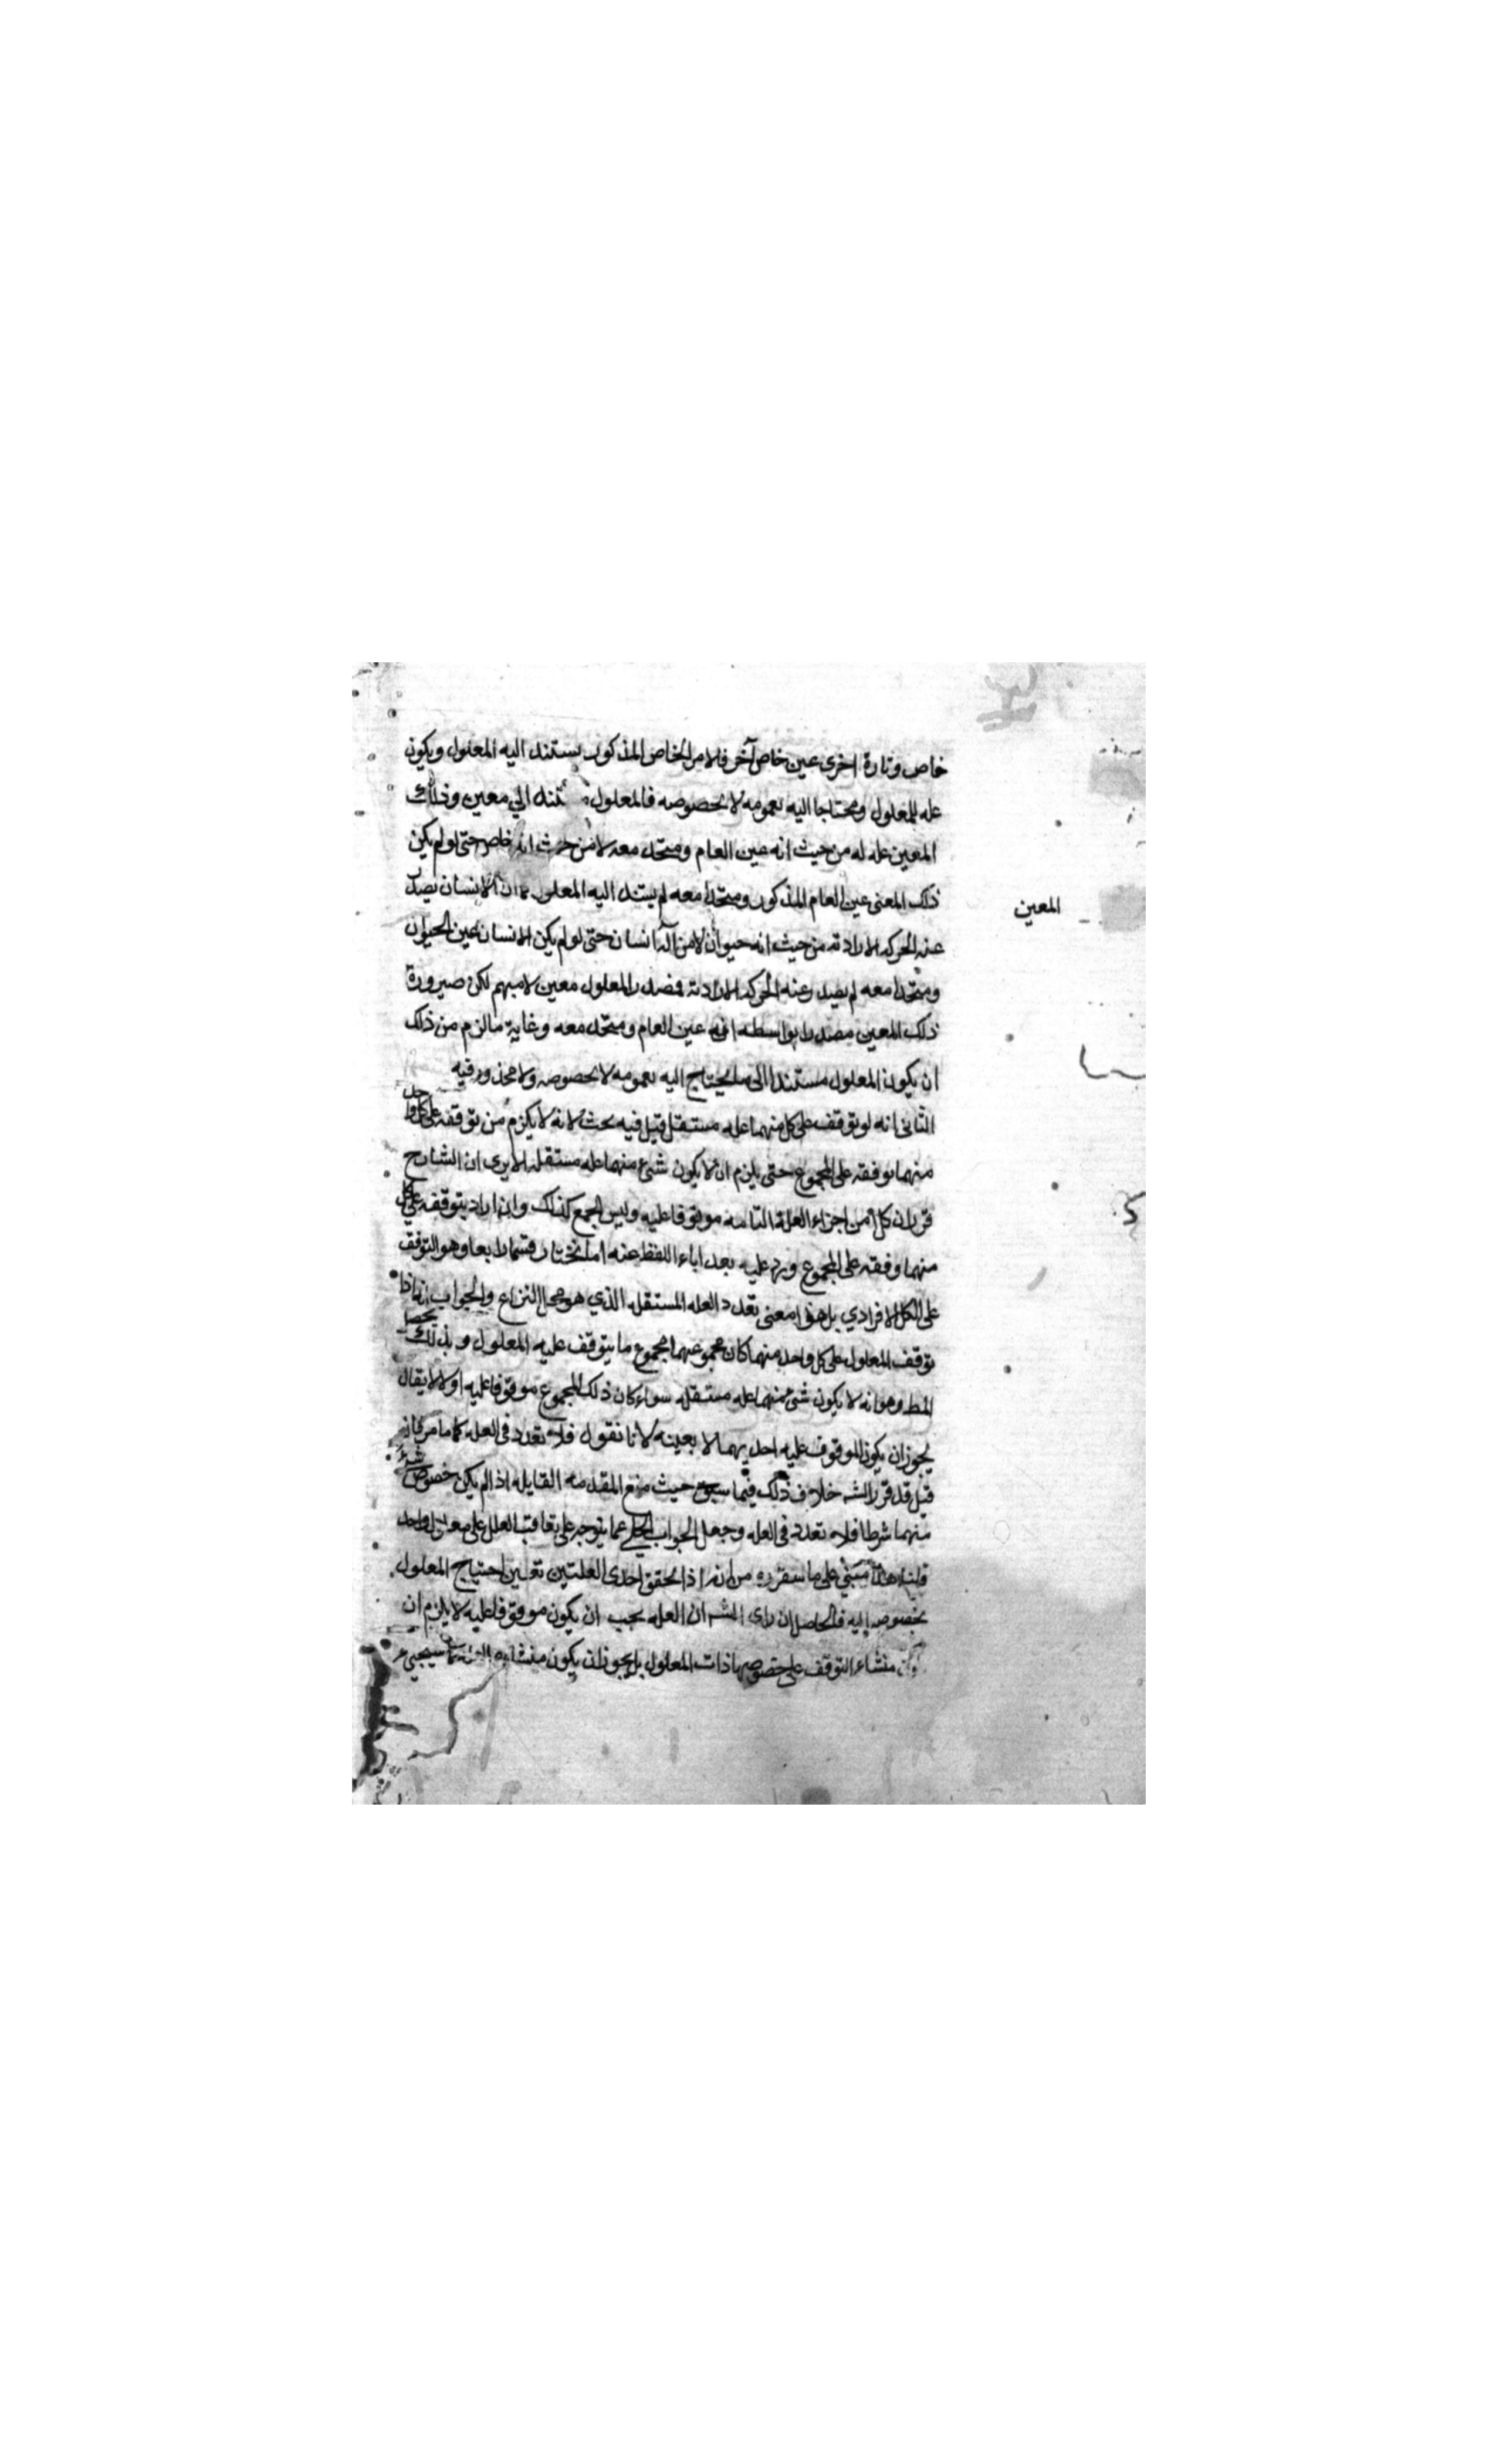 خاص وتارة اخرى عين خاص آخر فلامر الخاص المذكور يستند اليه المعلول ويكون
عله للمعلول ومحتاجا اليه بعمومه لا بخصوصه فالمعلول الي معين وذلك
المعين عله له من حيث انه عين العام ومتحد معه لا من حيث انه خاص حتى لو لم يكن
ذلك المعنى عين العام المذكور ومتحدا معه لم يستند اليه المعلول كما ان الانسان يصدر
المعين
عنه الحركه الارادته من حيث انه حيوان لا من انه انسان حتى لو لم يكن الانسان عين الحيوان
ومتحدا معه لم يصدر عنه الحركه الارادته فمصدر المعلول معين لا مبهم لكن صيرورة
ذلك المعين مصدرا بواسطه انه عين العام ومتحد معه وغاية ما لزم من ذلك
ان يكون المعلول مستندا الى ما يحتاج اليه بعمومه لا بخصوصه ولا محذور فيه
الثانى انه لو توقف على كل منهما عله مستقل قيل فيه بحث لانه لا يلزم من توقفه على كل واحد
منهما توقفه على المجموع حتى يلزم ان لا يكون شئ منهما عله مستقله الا يرى ان الشارح
قرر ان كلا من اجزاء العلة التامه موقوفا عليه وليس الجمع كذلك وان اراد بتوقفه على كل
منهما وفقه على المجموع ويرد عليه بعد اباء اللفظ عنه انا نختار قسما رابعا وهو التوقف
على الكل الافرادي بل هذا معنى تعدد العله المستقله الذي هو محل النزاع والجواب انه اذا
توقف المعلول على كل واحد منهما كان مجموعهما مجموع ما يتوقف عليه المعلول وبذلك يحصل
المط وهو انه لا يكون شئ منهما عله مستقله سواء كان ذلك المجموع موقوفا عليه اولا لا يقال
يجوز ان يكون الموقوف عليه احديهما لا بعينه لانا نقول فلا تعدد في العله كما مر فان
قيل قد قرر الشه خلاف ذلك فيما سبق حيث منع المقدمه القايله اذا لم يكن خصوص شئ
منهما شرطا فلا تعدد في العله وجعل الجواب الجلي عما يتوجه على تعاقب العلل على معلول واحد
قلنا هذا مبني على ما سنقرره من انه اذا تحقق احدى العلتين تعين احتياج المعلول
بخصوصه اليه فالحاصل ان راى الشه ان العله يجب ان يكون موقوفا عليه لا يلزم ان
يكون منشاء التوقف على خصوصها ذات المعلول بل يجوز ان يكون منشاؤه سيجيئ